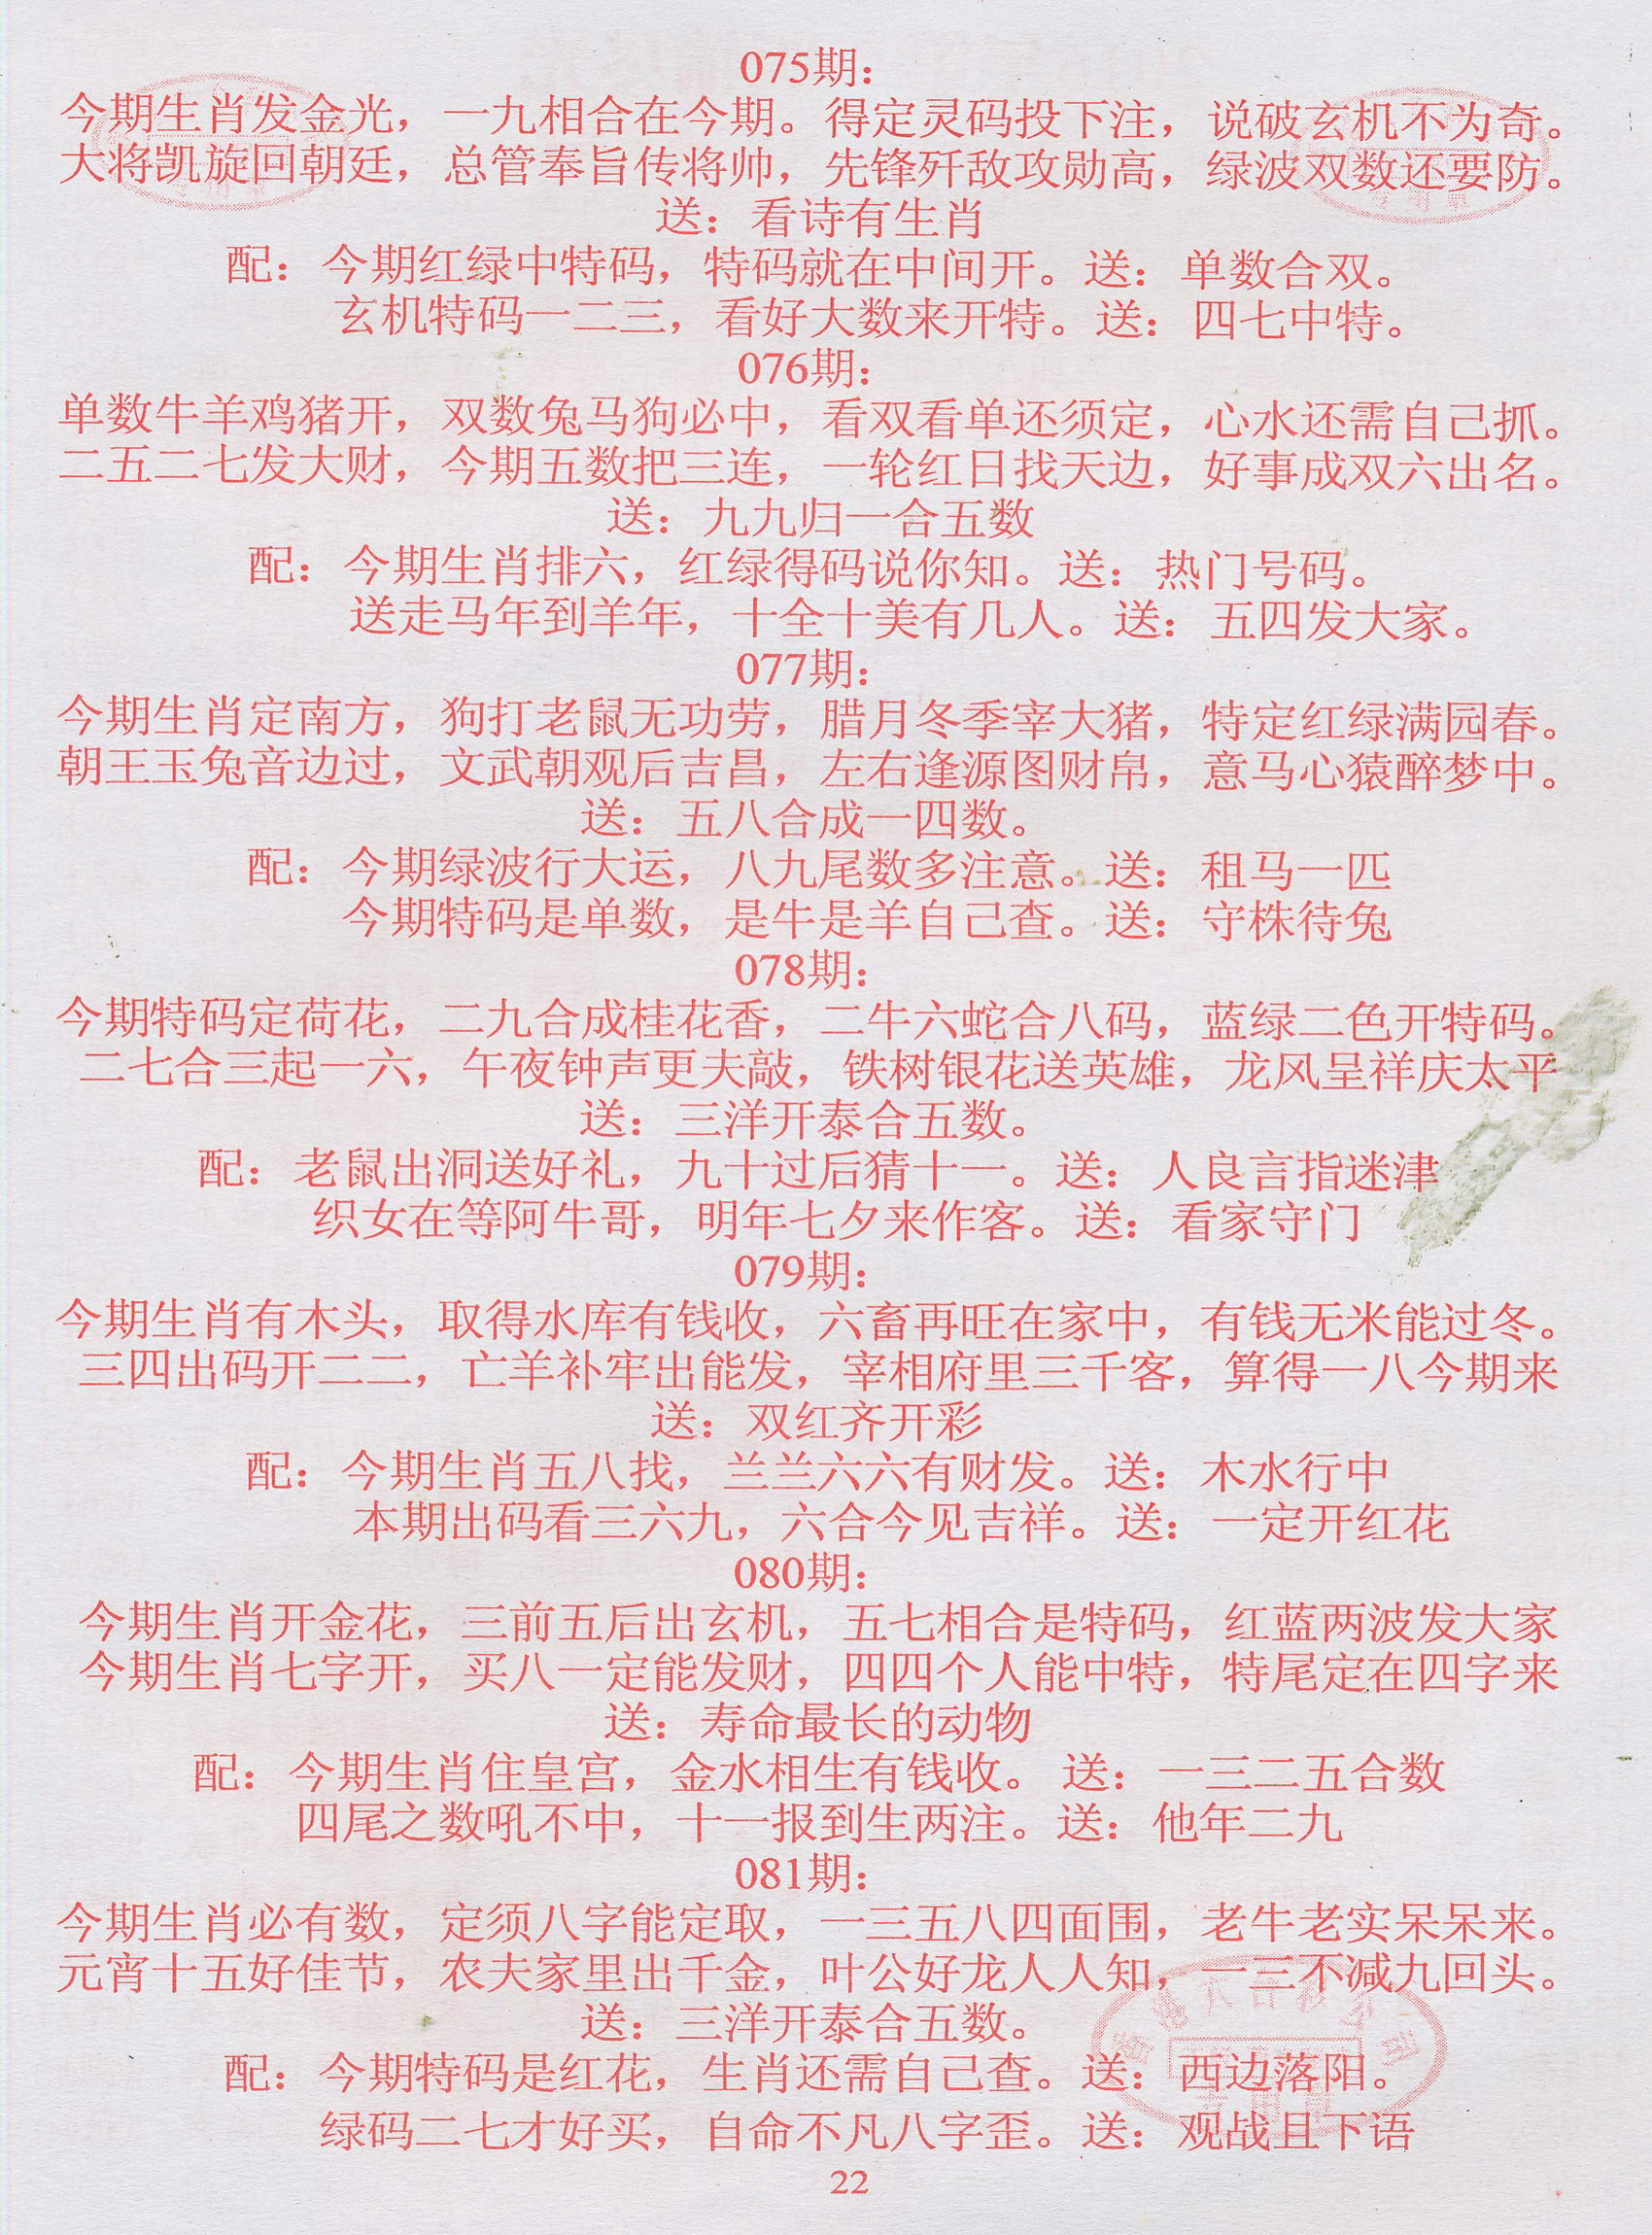 075期：
今期生肖发金光，一九相合在今期。得定灵码投下注，说破玄机不为奇。
大将凯旋回朝廷，总管奉旨传将帅，先锋歼敌攻勋高，绿波双数还要防。
送：看诗有生肖
配：今期红绿中特码，特码就在中间开。送：单数合双。
玄机特码一二三，看好大数来开特。送：四七中特。
076期：
单数牛羊鸡猪开，双数兔马狗必中，看双看单还须定，心水还需自己抓。
二五二七发大财，今期五数把三连，一轮红日找天边，好事成双六出名。
送：九九归一合五数
配：今期生肖排六，红绿得码说你知。送：热门号码。
送走马年到羊年，十全十美有几人。送：五四发大家。
077期：
今期生肖定南方，狗打老鼠无功劳，腊月冬季宰大猪，特定红绿满园春。
朝王玉兔音边过，文武朝观后吉昌，左右逢源图财帛，意马心猿醉梦中。
送：五八合成一四数。
配：今期绿波行大运，八九尾数多注意。送：租马一匹
今期特码是单数，是牛是羊自己查。送：守株待兔
078期：
今期特码定荷花，二九合成桂花香，二牛六蛇合八码，蓝绿二色开特码。
二七合三起一六，午夜钟声更夫敲，铁树银花送英雄，龙风呈祥庆太平
送：三洋开泰合五数。
配：老鼠出洞送好礼，九十过后猜十一。送：人良言指迷津
织女在等阿牛哥，明年七夕来作客。送：看家守门
079期：
今期生肖有木头，取得水库有钱收，六畜再旺在家中，有钱无米能过冬。
三四出码开二二，亡羊补牢出能发，宰相府里三千客，算得一八今期来
送：双红齐开彩
配：今期生肖五八找，兰兰六六有财发。送：木水行中
本期出码看三六九，六合今见吉祥。送：一定开红花
080期：
今期生肖开金花，三前五后出玄机，五七相合是特码，红蓝两波发大家
今期生肖七字开，买八一定能发财，四四个人能中特，特尾定在四字来
送：寿命最长的动物
配：今期生肖住皇宫，金水相生有钱收。送：一三二五合数
四尾之数吼不中，十一报到生两注。送：他年二九
081期：
今期生肖必有数，定须八字能定取，一三五八四面围，老牛老实呆呆来。
元宵十五好佳节，农夫家里出千金，叶公好龙人人知，一三不减九回头。
送：三洋开泰合五数。
配：今期特码是红花，生肖还需自己查。送：西边落阳。
绿码二七才好买，自命不凡八字歪。送：观战且下语
22